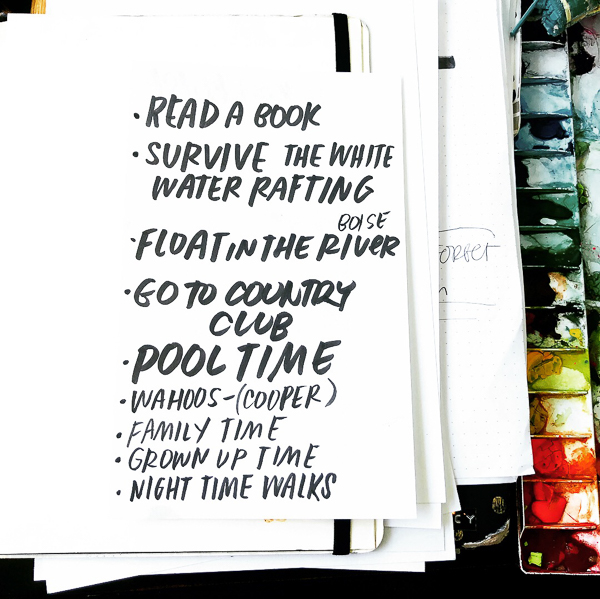 • READ A BOOK
• SURVIVE THE WHITE
WATER RAFTING
BOISE
• FLOAT IN THE RIVER
• GO TO COUNTRY
CLUB
• POOL TIME
• WAHOOS-(COOPER)
• FAMILY TIME
• GROWN UP TIME
• NIGHT TIME WALKS